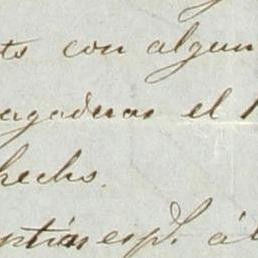 ts con algun
agaderas el
hecho.
esp.l á